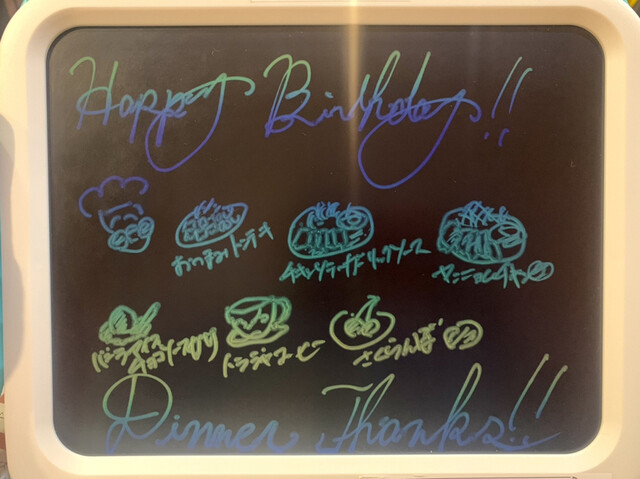 Happy Birthday!!
おつまみトンテキ
チキンソテーガーリックソース
ヤンニョムチキン
バニラアイス
チョコソースがけ
トラジャコーヒー
さくらんぼ
Dinner Thanks!!